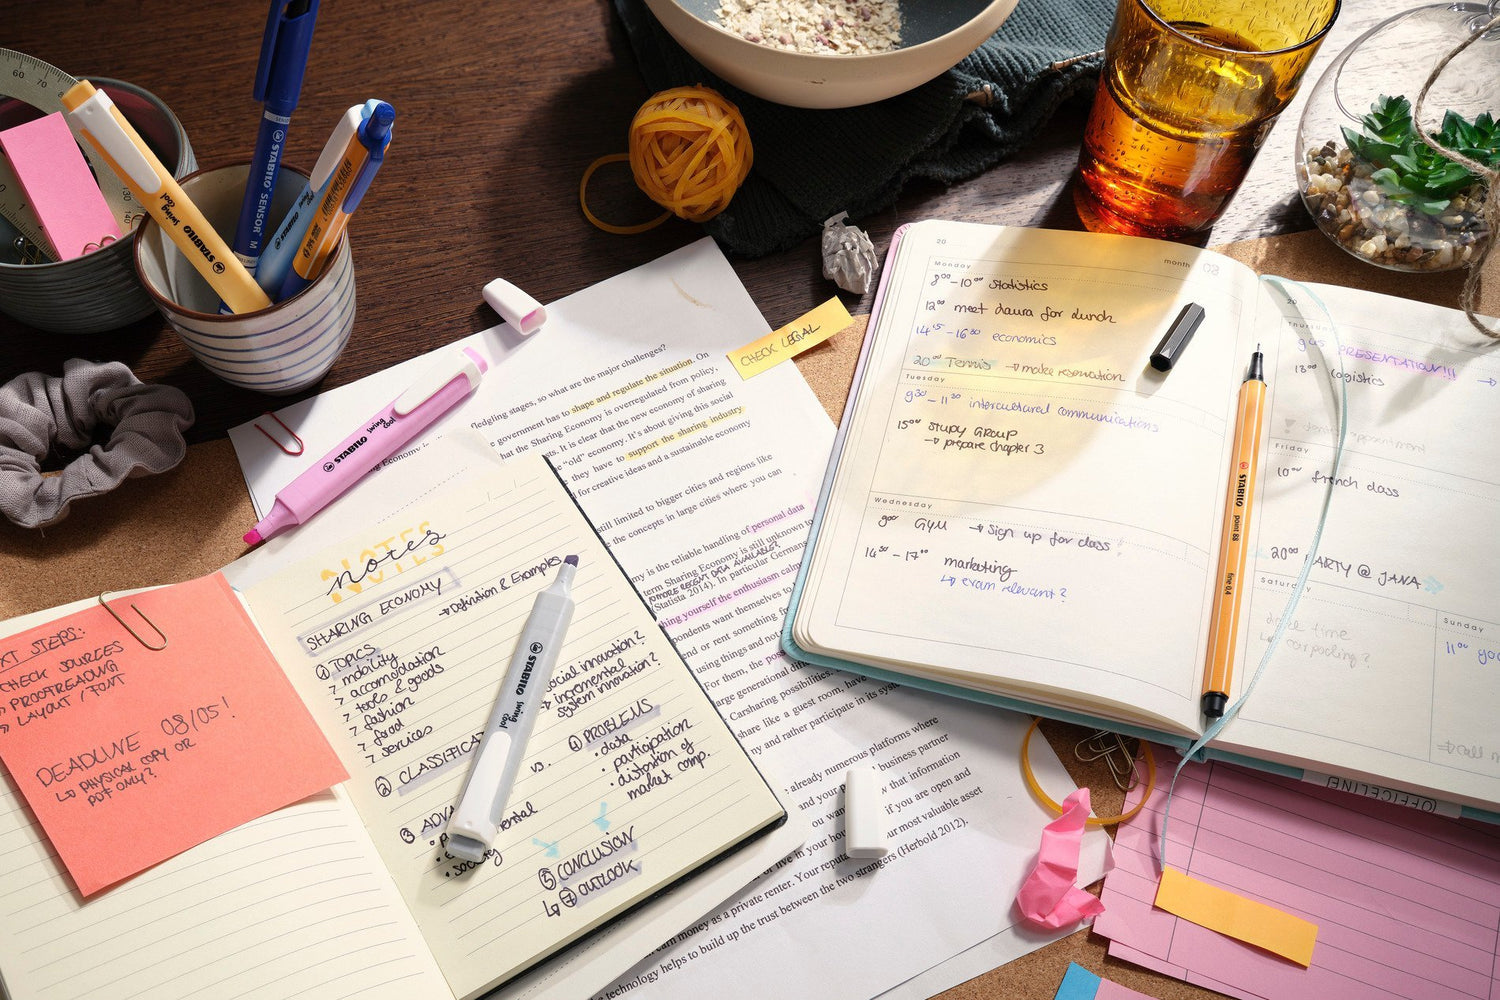 STABILO swing cool
STABILO SENSOR M
STABILO swing cool
CHECK LEGAL
ledging stages, so what are the major challenges?
e government has to shape and regulate the situation. On
that the Sharing Economy is overregulated from policy,
ts. It is clear that the new economy of sharing
e "old" economy. It's about giving this social
they have to support the sharing industry
l for creative ideas and a sustainable economy
still limited to bigger cities and regions like
e the concepts in large cities where you can
my is the reliable handling of personal data
term Sharing Economy is still unknown to
MORE RECENT DATA AVAILABLE?
(Statista 2014). In particular Germans
hing yourself the enthusiasm calms
pondents want themselves to
end or rent something
using things and not
For them, the
large generational
Carsharing possibilities.
share like a guest room, have
ny and rather participate in its
already numerous platforms where
and your business partner
ou want that information
in your if you are open and
or live in your most valuable asset
as a private renter. Your (Herbold 2012).
earn money
technology helps to build up the trust between the two strangers
NOTES
notes
SHARING ECONOMY
→ Definition & Examples
① TOPICS
? mobility
? accomodation
? tools & goods
? fashion
? food
? services
② CLASSIFICA
vs.
③ ADVA
ental
• society
social innovation?
incremental
system innovation?
④ PROBLEMS
• data
• participation
• distortion of
market comp.
⑤ CONCLUSION
↳ ⑦ OUTLOOK
STABILO swing cool
XT STEPS:
CHECK SOURCES
PROOFREADING
LAYOUT / FONT
DEADLINE 08/05!
↳ PHYSICAL COPY OR
PDF ONLY?
20
month 03
Monday
9⁰⁰-10³⁰ Statistics
12⁰⁰ meet Laura for Lunch
14¹⁵-16³⁰ economics
20⁰⁰ Tennis → make reservation
Tuesday
9³⁰-11³⁰ intercultured communications
15⁰⁰ STUDY GROUP
→ prepare chapter 3
Wednesday
9⁰⁰ GYM → sign up for class!
14³⁰-17⁰⁰ marketing
↳ exam relevant?
STABILO point 88 fine 0,4
20
Thursday
9⁴⁵ PRESENTATION!!! →
13⁰⁰ Logistics
Friday
10⁰⁰ french class
20⁰⁰ PARTY @ JANA
Saturday
time
carpooling?
Sunday
11⁰⁰
OFFICELINE